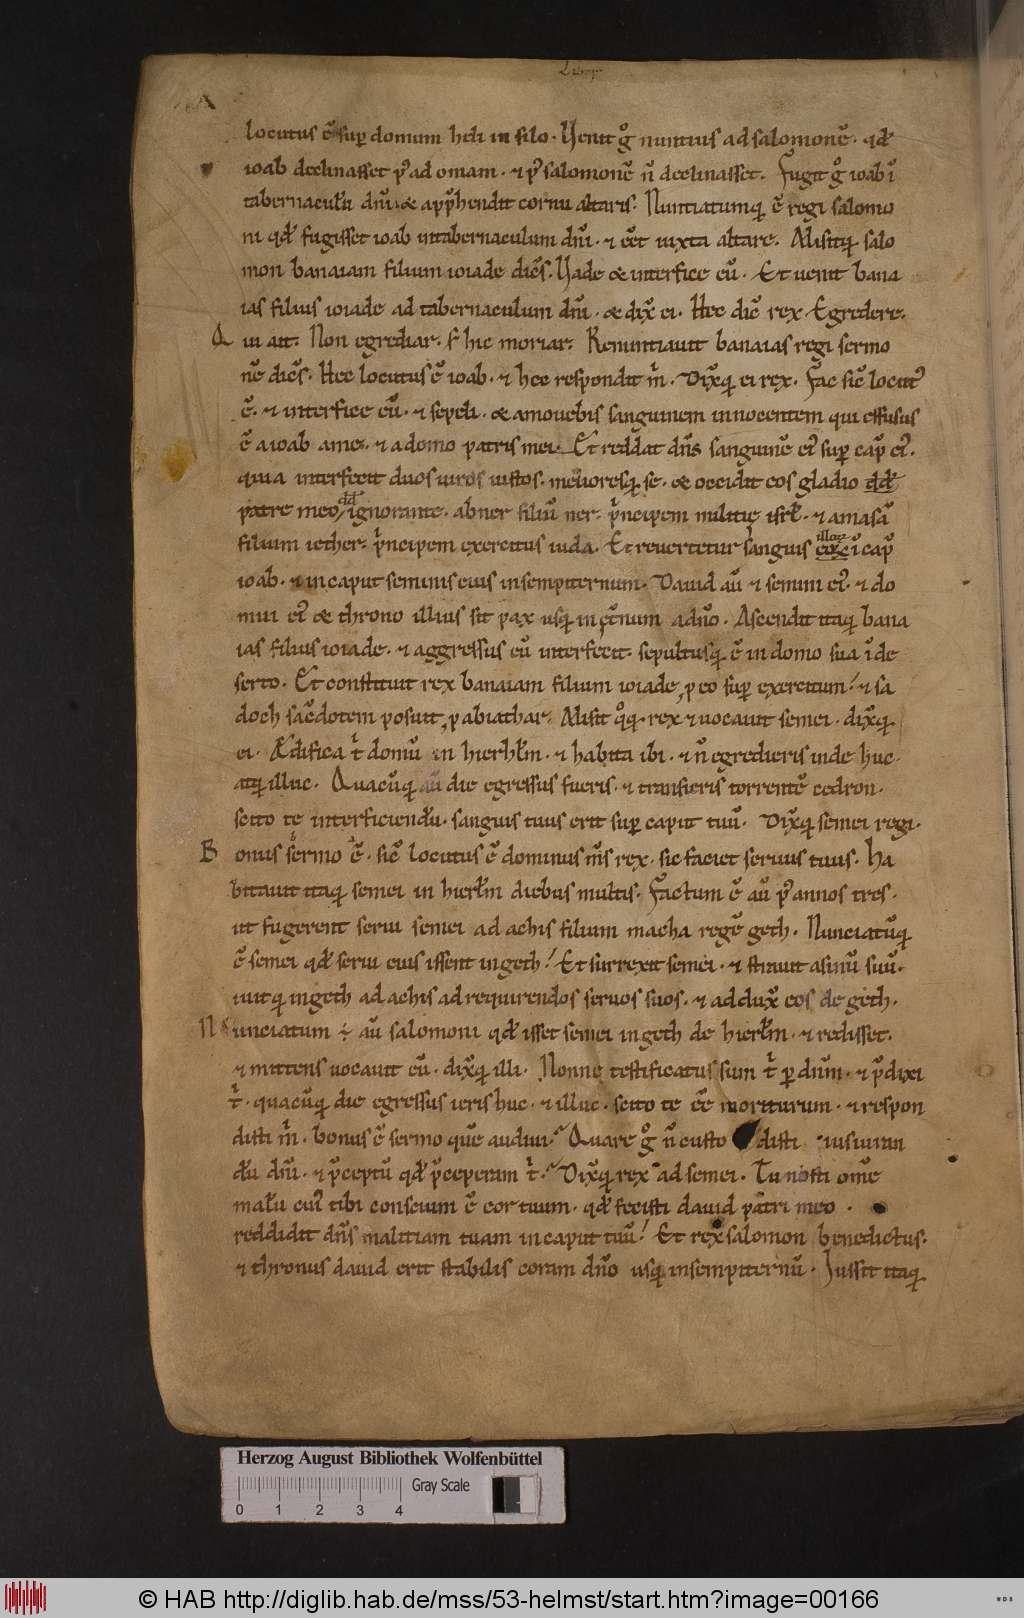 locutus ē sup̄ domum heli in silo. Uenit g° nuntius ad salomonē. qđ
ioab declinasset p᷒ ad oniam. ⁊ p᷒ salomonē n̄ declinasset. Fugit g° ioab ī
tabernaculū dn̄i. & app̄hendit cornu altaris. Nuntiatumq; ē regi salomo
ni qđ fugisset ioab in tabernaculum dn̄i. ⁊ eēt iuxta altare. Misitq; salo
mon banaiam filium ioiade dicēs. Uade & interfice eū. Et uenit bana
ias filius ioiade ad tabernaculum dn̄i. & dix̄ ei. Hec dic̄ rex Egredere.
Q ui ait. Non egrediar. s; hic moriar. Renuntiauit banaias regi sermo
nē dicēs. Hec locutus ē ioab. ⁊ hec respondit m̄. Dix̄q; ei rex. Fac sic̄ locut᷒
ē. ⁊ interfice eū. ⁊ sepeli. & amouebis sanguinem innocentem qui effusus
ē a ioab a me. ⁊ a domo patris mei. Et reddat dn̄s sanguinē ei᷒ sup̄ cap̄ ei᷒.
quia interfecit duos uiros iustos. melioresq; se. & occidit eos gladio dđ
patre meo dđ ignorante. abner filiū ner. p̄ncipem militię isrł. ⁊ amasā
filium iether. p̄ncipem exercitus iuda. Et reuertetur sanguis illoꝝ eoꝝ ī cap̄
ioab. ⁊ in caput seminis eius in sempiternum. Dauid aū ⁊ semini ei᷒. ⁊ do
mui ei᷒ & throno illius sit pax usq; in ęt̄num a dn̄o. Ascendit itaq; bana
ias filius ioiade. ⁊ aggressus eū interfecit. sepultusq; ē in domo sua ī de
serto. Et constituit rex banaiam filium ioiade, p eo sup̄ exercitum. ⁊ sa
doch sac̄dotem posuit, p abiathar. Misit q°q; rex ⁊ uocauit semei. dix̄q;
ei. Ædifica t̄ domū in hierłm. ⁊ habita ibi. ⁊ n̄ egredieris inde huc
atq; illuc. Quacūq; aū die egressus fueris. ⁊ transieris torrentē cedron.
scito te interficiendū. sanguis tuus erit sup̄ caput tuū. Dix̄q; semei regi.
B onus sermo ē. sic̄ locutus ē dominus m̄s rex. sic faciet seruus tuus. Ha
bitauit itaq; semei in hierłm diebus multis. Factum ē aū p᷒ annos tres.
ut fugerent serui semei ad achis filium macha regē geth. Nunciatūq;
ē semei qđ serui eius issent in geth. Et surrexit semei. ⁊ strauit asinū suū.
iuitq; in geth ad achis ad requirendos seruos suos. ⁊ addux̄ eos de geth.
N unciatum ÷ aū salomoni qđ isset semei in geth de hierłm. ⁊ redisset.
⁊ mittens uocauit eū. dix̄q; illi. Nonne testificatus sum t̄ p̱ dn̄m. ⁊ p̄dixi
t̄. quacūq; die egressus ieris huc. ⁊ illuc. scito te eē moriturum. ⁊ respon
disti m̄. bonus ē sermo quē audiui. Quare g° n̄ custo disti iusiuran
dū dn̄i. ⁊ p̄ceptū qđ p̄ceperam t̄. Dix̄q; rex ad semei. Tu nosti omē
malū cui᷒ tibi conscium ē cor tuum. qđ fecisti dauid patri meo.
reddidit dn̄s malitiam tuam in caput tuū. Et rex salomon benedictus.
⁊ thronus dauid erit stabilis coram dn̄o usq; in sempiternū. Iussit itaq;
Herzog August Bibliothek Wolfenbüttel
0 1 2 3 4 Gray Scale
© HAB http://diglib.hab.de/mss/53-helmst/start.htm?image=00166